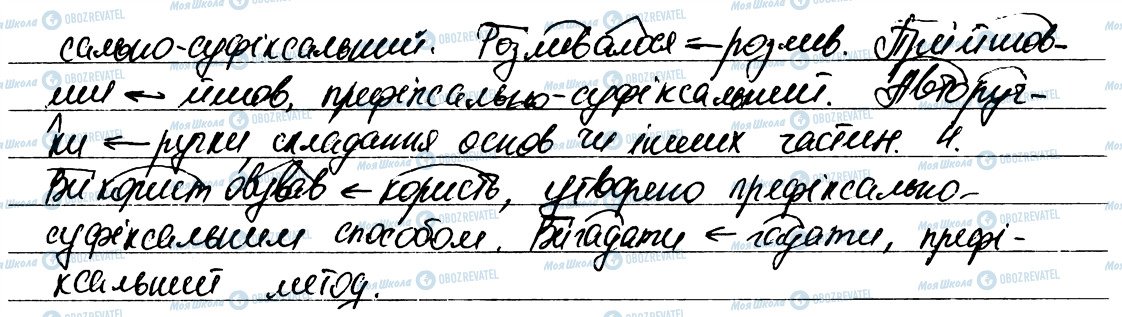 сально-суфіксальний. Розливалося ← розлив. Прийшов-
ши ← йшов, префіксально-суфіксальний. Авторуч-
ки ← ручки, складання основ чи інших частин. 4.
Використовував ← користь, утворено префіксально-
суфіксальним способом. Вигадати ← гадати, префі-
ксальний метод.